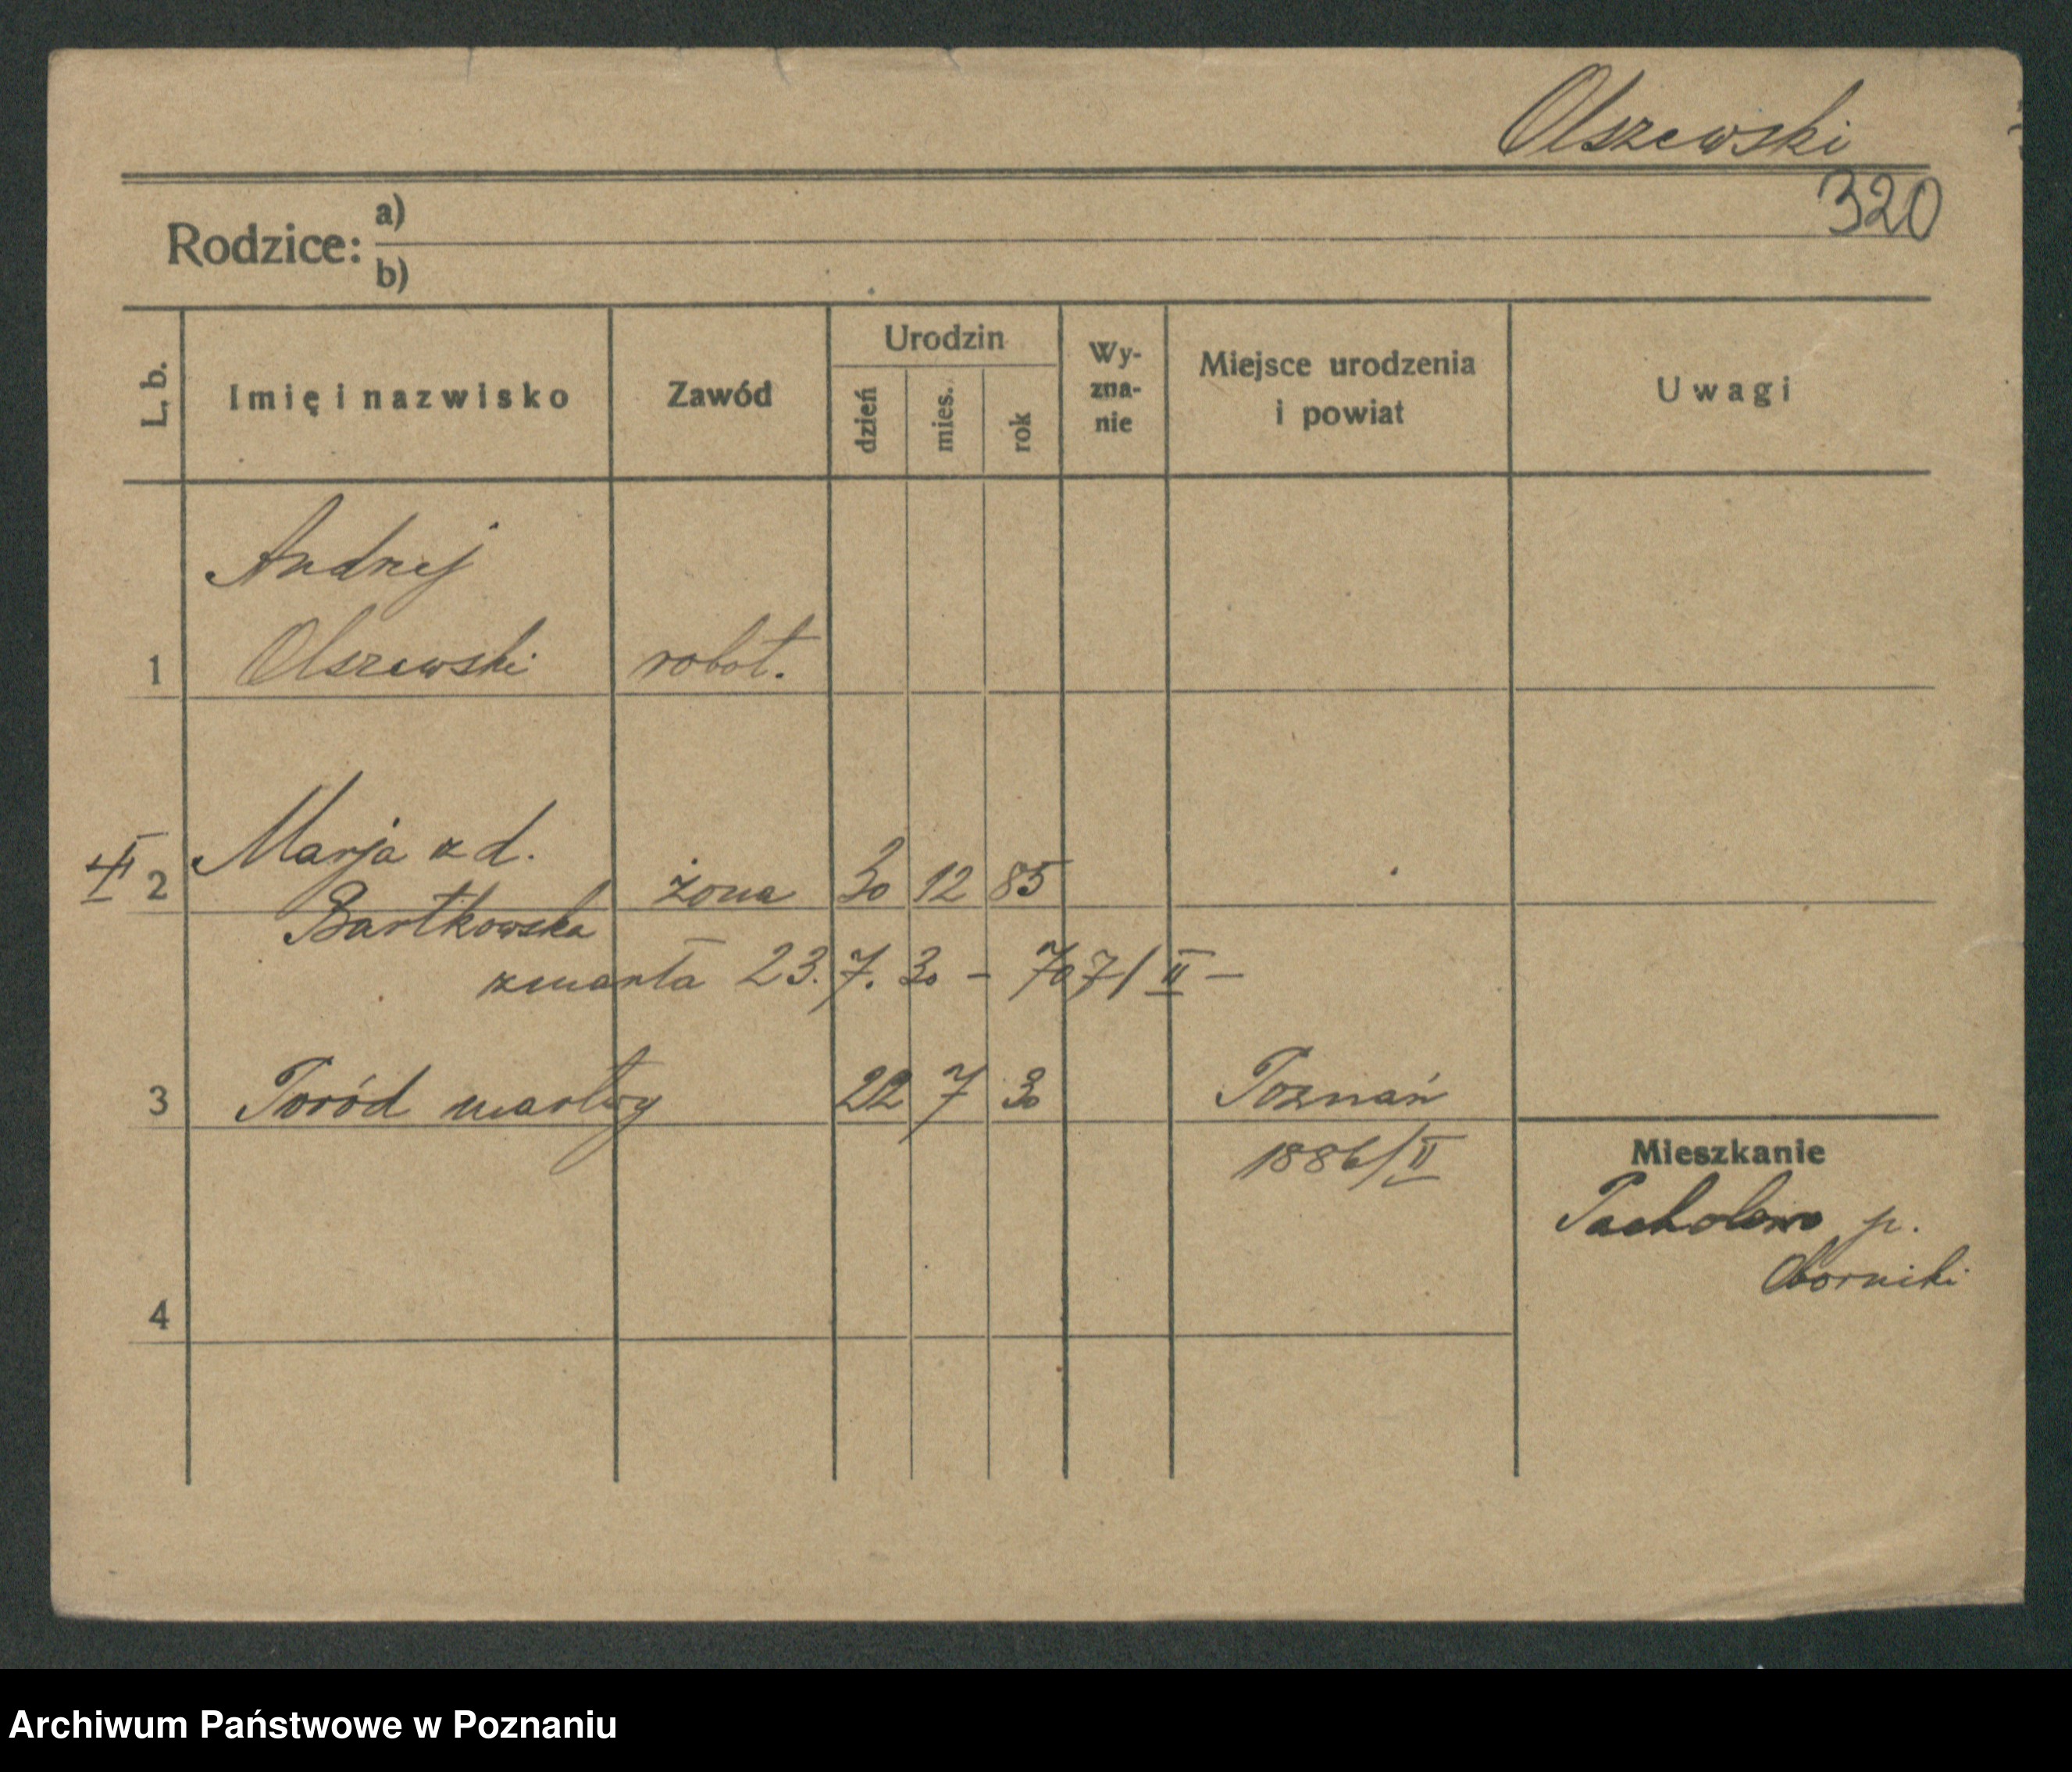 Olszewski
320
Rodzice: a)
b)
L. b. Imię i nazwisko Zawód Urodzin dzień mies. rok Wy-zna-nie Miejsce urodzenia i powiat Uwagi
Andrzej
1 Olszewski robot.
Marja z d.
2 żona 30 12 85
Bartkowska
zmarła 23. 7. 30 - 707/II -
3 Poród martwy 22 7 30 Poznań
1886/II
Mieszkanie
Pacholewo p.
Oborniki
4
Archiwum Państwowe w Poznaniu